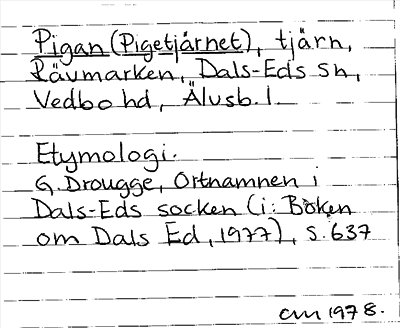 Pigan (Pigetjärnet), tjärn,
Rävmarken, Dals-Eds sn,
Vedbo hd, Älvsb. l.
Etymologi.
G. Drougge, Ortnamnen i
Dals-Eds socken (i: Boken
om Dals Ed, 1977), s. 637
cm 1978.